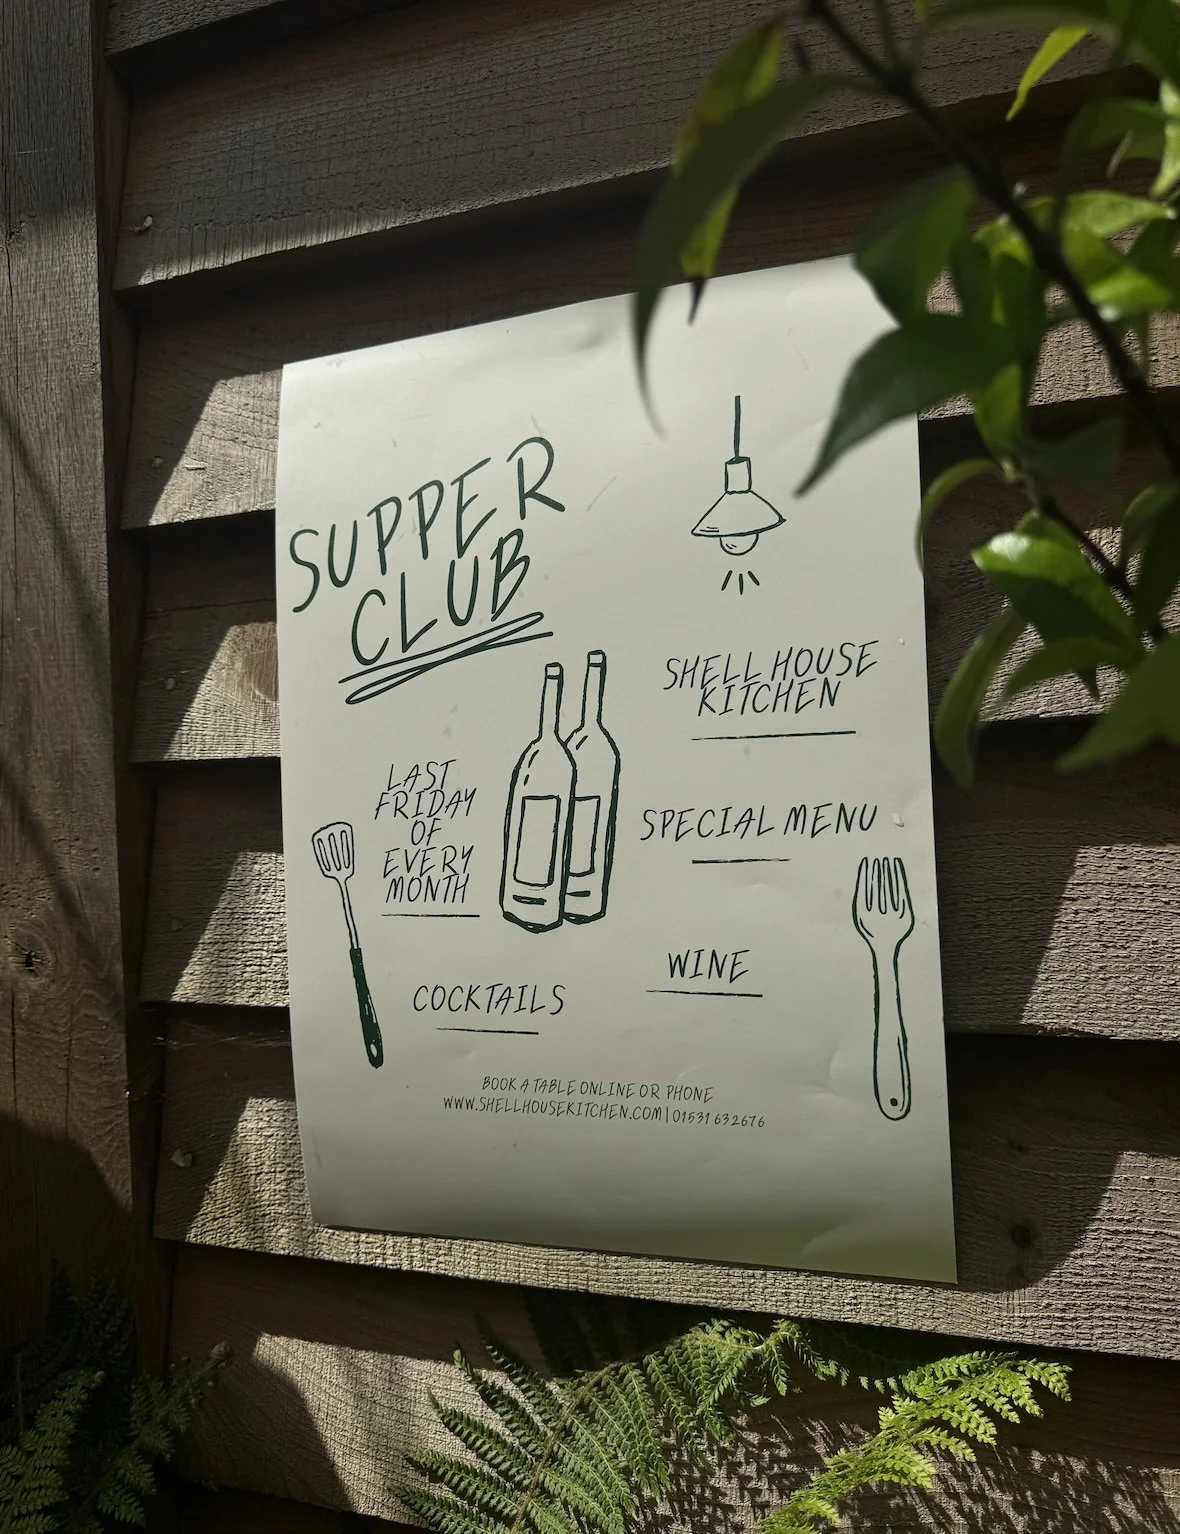 SUPPER
CLUB
LAST
FRIDAY
OF
EVERY
MONTH
COCKTAILS
SHELL HOUSE
KITCHEN
SPECIAL MENU
WINE
BOOK A TABLE ONLINE OR PHONE
WWW.SHELLHOUSEKITCHEN.COM | 01531 632676